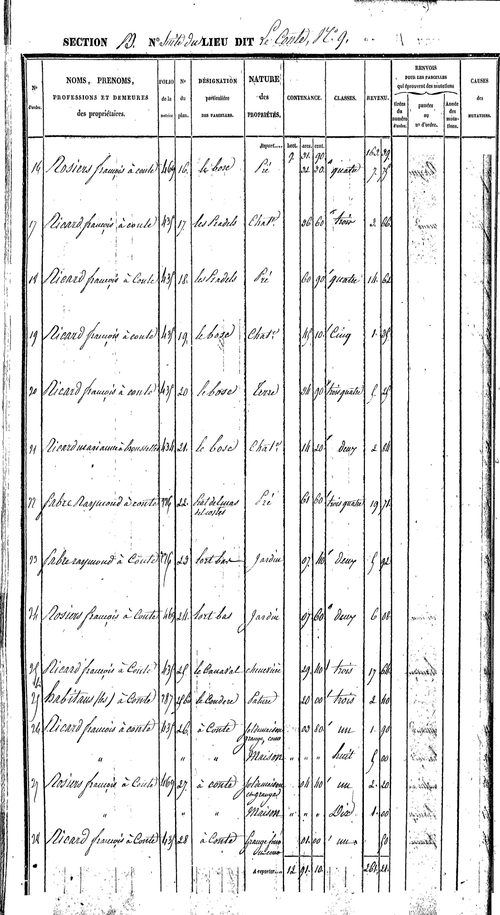 SECTION B. N° Suite du LIEU DIT Le Conte, N° 9.
N° d'ordre.
NOMS, PRENOMS, PROFESSIONS ET DEMEURES des propriétaires.
FOLIO de la matrice
N° du plan.
DÉSIGNATION particulière DES PARCELLES.
NATURE des PROPRIÉTÉS.
CONTENANCE.
CLASSES.
REVENU.
RENVOIS POUR LES PARCELLES qui éprouvent des mutations
tirées du numéro d'ordre.
passées au n° d'ordre.
Année des mutations.
CAUSES des MUTATIONS.
Report.... 9. 31. 90 162. 39
16 Rosiers françois à conte 469 16. le bose Pré 22. 20. quatre 7. 75
17 Ricard françois à conte 435 17 les Pradels Chat. 26 60 trois 2. 66
18 Ricard françois à Conte 435 18. les Pradels Pré 60 90 quatre 14. 62
19 Ricard françois à conte 435 19. le bose Chat. 45 10 Cinq 1. 35
20 Ricard françois à conte 435 20 le bose Terre 24 90 trois quatre 5. 25
21 Ricard 434 21. le bose Chat. 14 20 deux 2 84
22 fabre Raymond à conte 176 22. Prat Pré 61 60 trois quatre 19 71
23 fabre raymond à Conte 176 23 lort bas Jardin 07 40 deux 5 92
24 Rosiers françois à Conte 469 24. lort bas Jardin 07 60 deux 6 08
25 Ricard françois à Conte 435 25. le Canabal cheneviere 29 40 trois 17 66
25 habitans (les) à Conte 787 25 le Coudere Pature 20 00 trois 2 40
26 Ricard françois à conte 435 26 à Conte Sol maison grange, cour 03 80 un 1 90
" " " Maison " " huit 5 00
27 Rosiers françois à Conte 469 27. à conte Sol maison et grange 04 40 un 2 20
" " " Maison " " " Dix 1 00
28 Ricard françois à Conte 435 28 à Conte Grange 01. 00 un 50
A reporter... 12 91 10. 261 21.